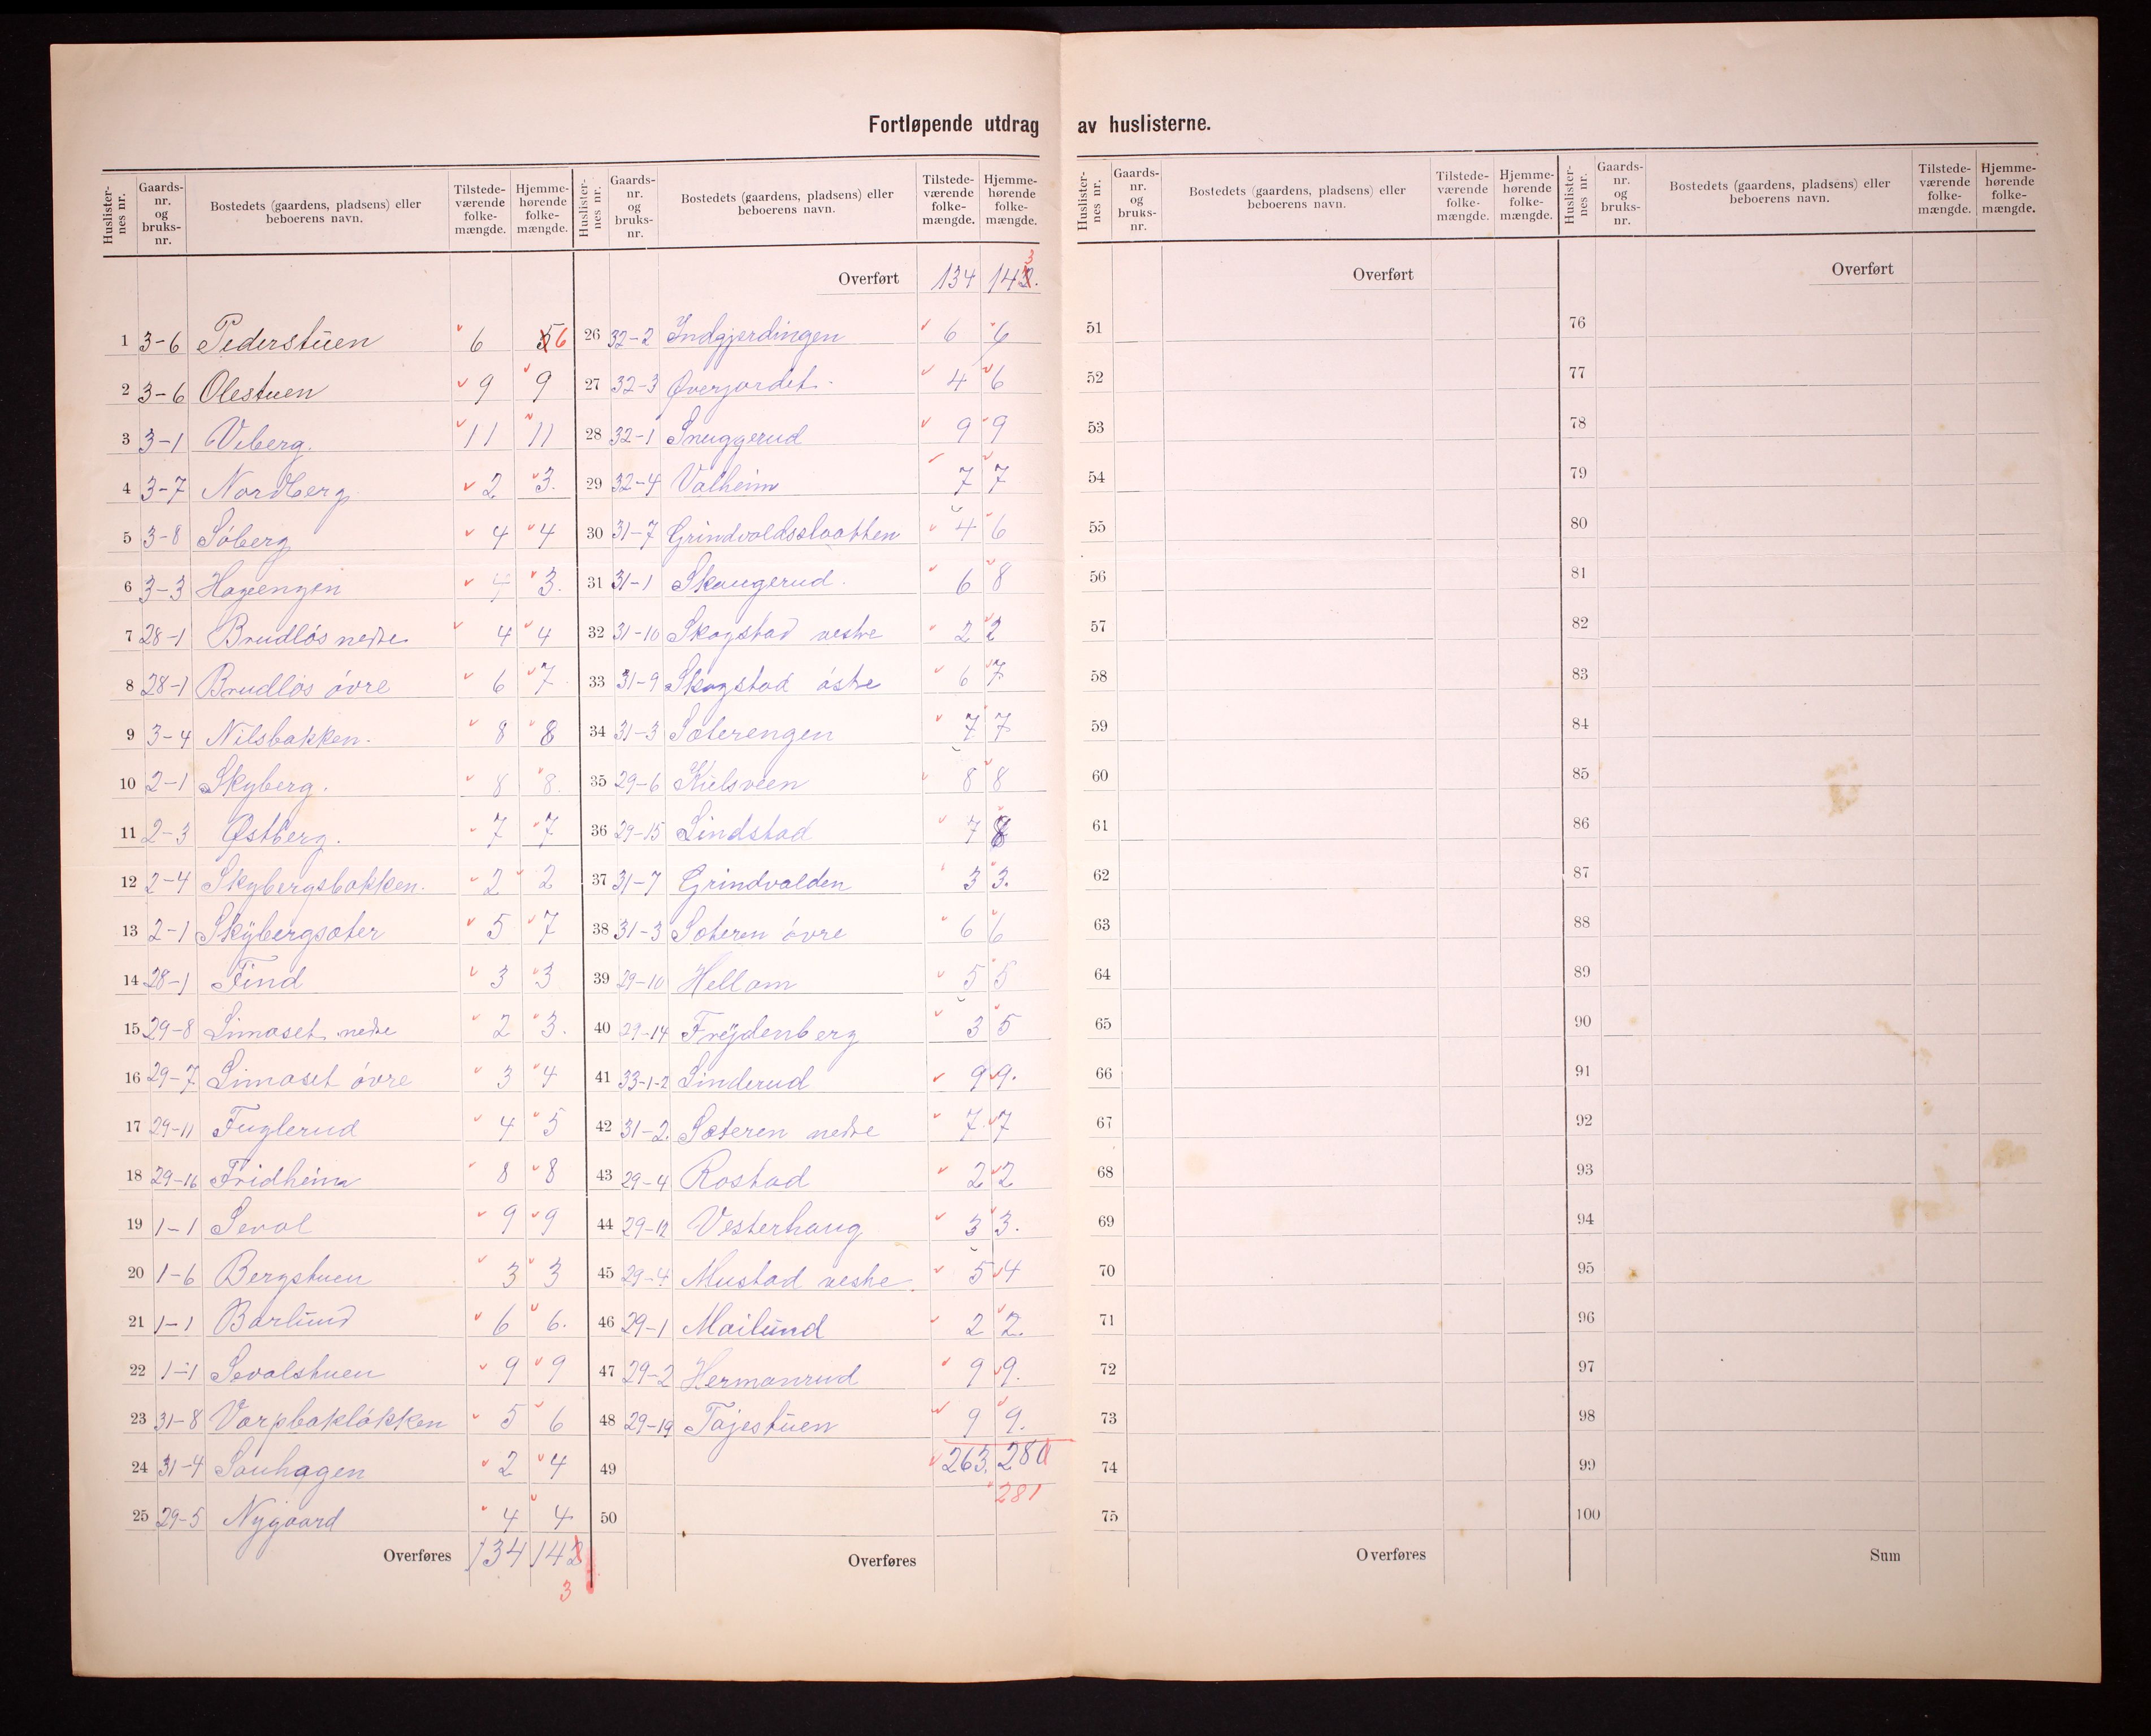 Fortløpende utdrag av huslisterne.
Huslisternes nr. Gaards-nr. og bruks-nr. Bostedets (gaardens, pladsens) eller beboerens navn. Tilstede-værende folke-mængde. Hjemme-hørende folke-mængde.
1 3-6 Pederstuen 6 5 6
2 3-6 Olestuen 9 9
3 3-1 Viberg. 11 11
4 3-7 Nordberg 2 3.
5 3-8 Söberg 4 4
6 3-3 Hageengen 4 3.
7 28-1 Brudlös nedre 4 4
8 28-1 Brudlös övre 6 7
9 3-4 Nilsbakken. 8 8
10 2-1 Skyberg. 8 8.
11 2-3 Østberg. 7 7
12 2-4 Skybergsbakken. 2 2
13 2-1 Skybergsæter 5 7
14 28-1 Find 3 3
15 29-8 Limaset nedre 2 3.
16 29-7 Limaset övre 3 4
17 29-11 Fuglerud 4 5
18 29-16 Fridheim 8 8
19 1-1 Seval 9 9
20 1-6 Bergstuen 3 3
21 1-1 Barlund 6 6.
22 1-1 Sevalstuen 9 9
23 31-8 Varpbaklökken 5 6
24 31-4 Sauhagen 2 4
25 29-5 Nygaard 4 4
Overføres 134 142
3
Huslisternes nr. Gaards-nr. og bruks-nr. Bostedets (gaardens, pladsens) eller beboerens navn. Tilstede-værende folke-mængde. Hjemme-hørende folke-mængde.
3
Overført 134 142.
26 32-2 Indgjerdingen 6 6
27 32-3 Øverjordet. 4 6
28 32-1 Snuggerud 9 9
29 32-4 Valheim 7 7
30 31-7 Grindvoldsslaatten 4 6
31 31-1 Skaugerud. 6 8
32 31-10 Skogstad vestre 2 2
33 31-9 Skogstad östre 6 7
34 31-3 Sæterengen 7 7
35 29-6 Kielsveen 8 8
36 29-15 Lindstad 7 8
37 31-7 Grindvolden 3 3.
38 31-3 Sæteren övre 6 6
39 29-10 Hellom 5 5
40 29-14 Frydenberg 3 5
41 33-1-2 Linderud 9 9.
42 31-2. Sæteren nedre 7 7
43 29-4 Rostad 2 2
44 29-12 Vesterhaug 3 3.
45 29-4 Mustad vestre. 5 4
46 29-1 Mailund 2 2.
47 29-2 Hermanrud 9 9.
48 29-19 Tajestuen 9 9.
49 263. 280
281
50
Overføres
Huslisternes nr. Gaards-nr. og bruks-nr. Bostedets (gaardens, pladsens) eller beboerens navn. Tilstede-værende folke-mængde. Hjemme-hørende folke-mængde.
Overført
51
52
53
54
55
56
57
58
59
60
61
62
63
64
65
66
67
68
69
70
71
72
73
74
75
Overføres
Huslisternes nr. Gaards-nr. og bruks-nr. Bostedets (gaardens, pladsens) eller beboerens navn. Tilstede-værende folke-mængde. Hjemme-hørende folke-mængde.
Overført
76
77
78
79
80
81
82
83
84
85
86
87
88
89
90
91
92
93
94
95
96
97
98
99
100
Sum